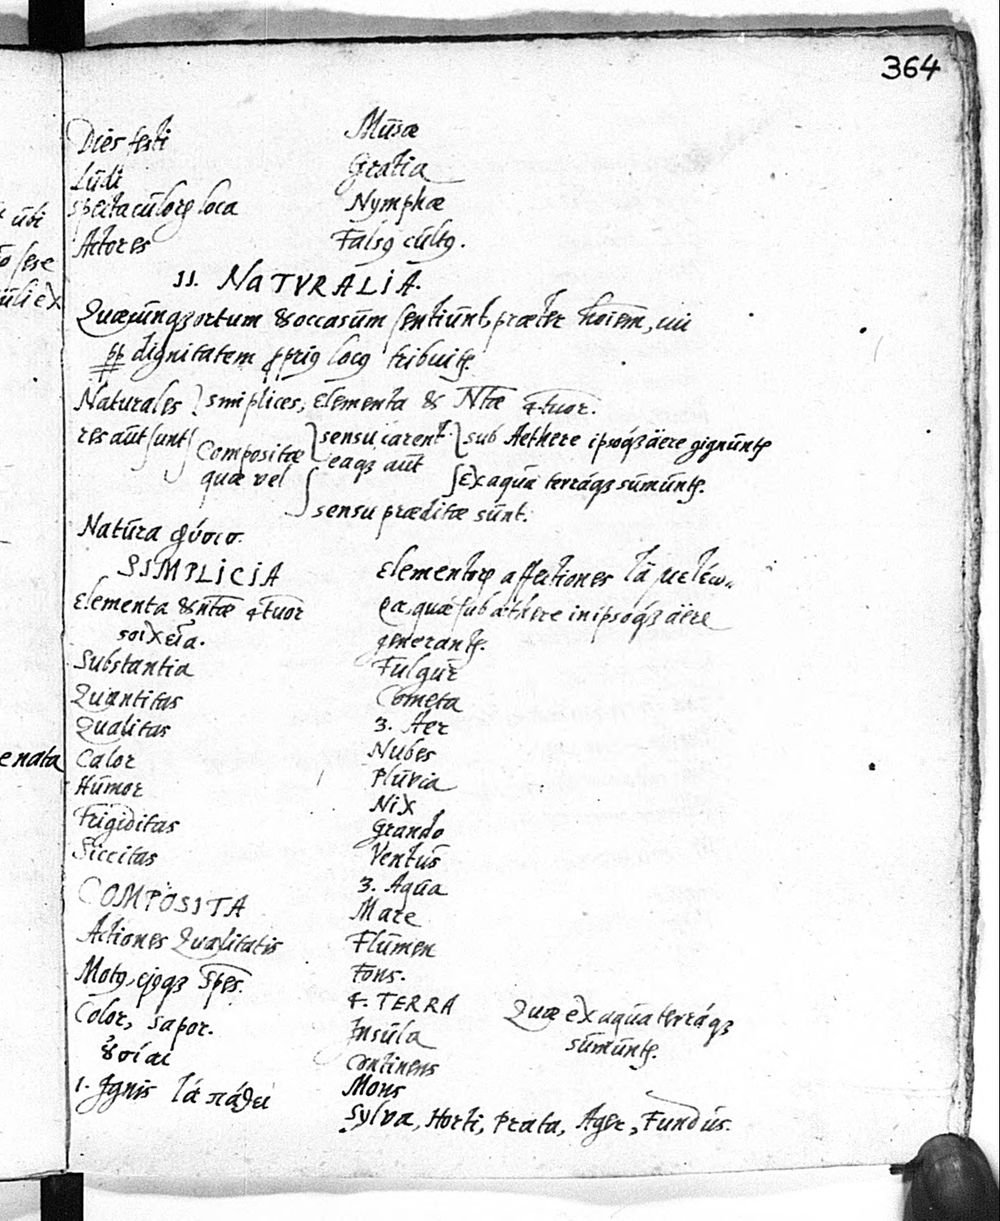 364
Dies festi
Ludi
Spectaculorꝝ loca
Actores
Musæ
Gratia
Nymphæ
Falsꝰ cultꝰ.
II. NATVRALIA.
Quæcunqꝫ ortum & occasum sentiunt, præter hoīem, cui
ꝓꝑ dignitatem ꝓpriꝰ locꝰ tribuit̃.
Naturales simplices, Elementa & Ntæ 4tuor.
res aut sunt
Compositæ
quæ vel
sensu carent.
eaqꝫ aut
sub Aethere ipsoqꝫ äere gignunt̃
Ex aqua terráqꝫ sumunt̃.
sensu præditæ sunt.
Natura φύσισ.
SIMPLICIA
Elementa & ntæ 4tuor
ςοιχεῖα.
Substantia
Quantitas
Qualitas
Calor
Humor
Frigiditas
Siccitas
COMPOSITA
Actiones Qualitatis
Motꝰ, ejꝰqꝫ Spēs.
Color, Sapor.
ȣσίαι
1. Ignis τὰ πάθει
Elementorꝝ affectiones τὰ μετέω-
ρα, quæ sub æthere in ipsoqꝫ äere
generant̃.
Fulgur
Cometa
3. Aer
Nubes
Pluvia
Nix
Grando
Ventus
3. Aqua
Mare
Flumen
Fons.
4. TERRA
Insula
Continens
Mons
Sylva, Horti, Prata, Ager, Fundus.
Quæ ex aqua terráqꝫ
sumunt̃.
ubi
sese
enata